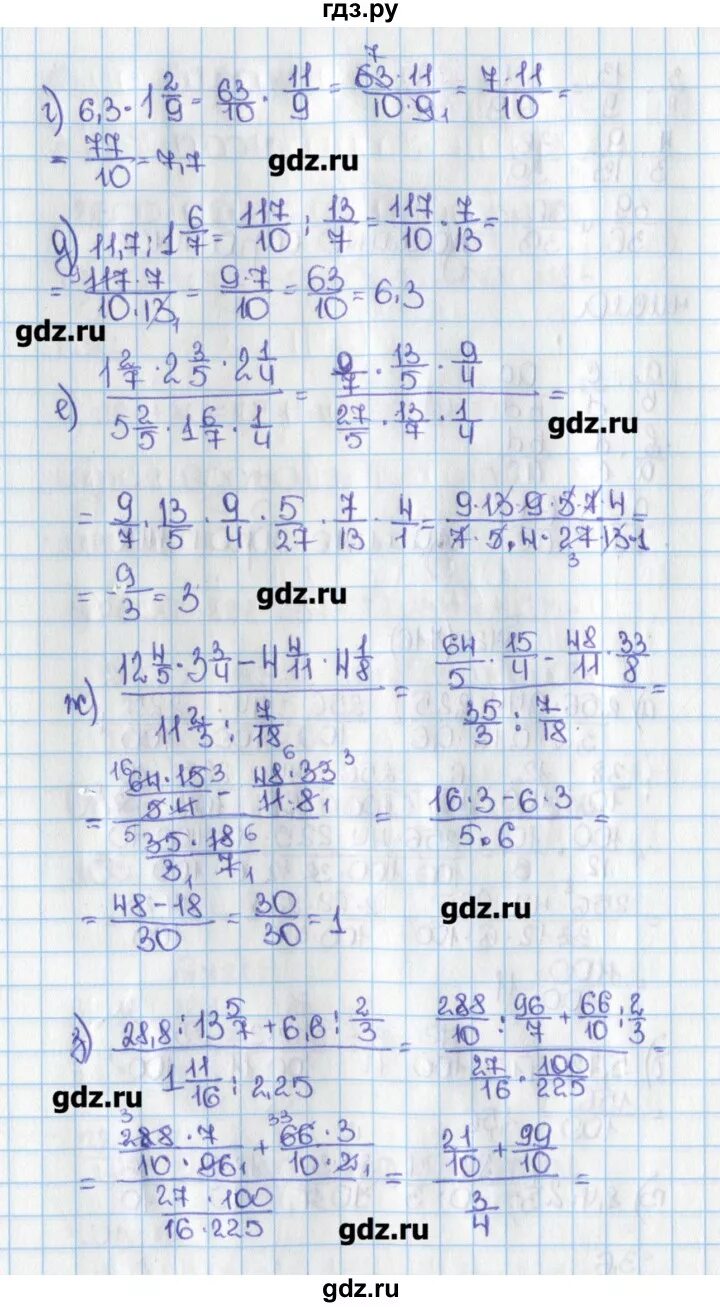 гдз.ру
г) 6,3 · 1 2/9 = 63/10 · 11/9 = 63·11/10·9 = 7·11/10 =
= 77/10 = 7,7
gdz.ru
д) 11,7 : 1 6/7 = 117/10 : 13/7 = 117/10 · 7/13 =
= 117·7/10·13 = 9·7/10 = 63/10 = 6,3
gdz.ru
е) (1 2/7 · 2 3/5 · 2 1/4)/(5 2/5 · 1 6/7 · 1/4) = (9/7 · 13/5 · 9/4)/(27/5 · 13/7 · 1/4) =
gdz.ru
= 9/7 · 13/5 · 9/4 · 5/27 · 7/13 · 4/1 = 9·13·9·5·7·4/7·5·4·27·13·1 =
= 9/3 = 3
gdz.ru
ж) (12 4/5 · 3 3/4 − 4 4/11 · 4 1/8)/(11 2/3 : 7/18) = (64/5 · 15/4 − 48/11 · 33/8)/(35/3 : 7/18) =
= (64·15/5·4 − 48·33/11·8)/(35·18/3·7) = (16·3−6·3)/(5·6) =
= (48−18)/30 = 30/30 = 1
gdz.ru
з) (28,8 : 13 5/7 + 6,6 : 2/3)/(1 11/16 : 2,25) = (288/10 : 96/7 + 66/10 : 2/3)/(27/16 · 100/225) =
gdz.ru
= (288·7/10·96 + 66·3/10·2)/(27·100/16·225) = (21/10 + 99/10)/(3/4) =
gdz.ru
gdz.ru